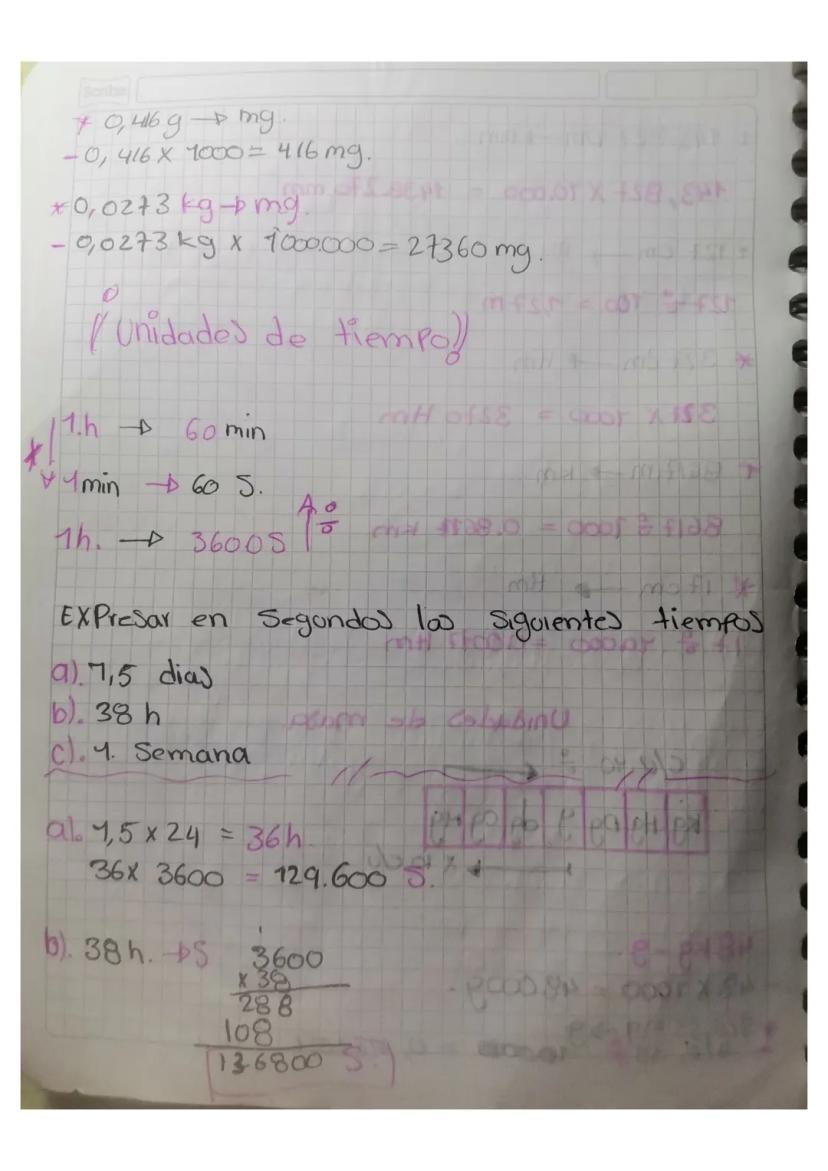 Scribe
* 0,416 g → mg.
- 0,416 x 1000 = 416 mg.
* 0,0273 kg → mg.
- 0,0273 kg x 1000.000 = 27360 mg.
¡¡Unidades de tiempo!!
1.h → 60 min
x
1min → 60 S.
1h. → 3600S ÷
EXPresar en segundos los siguientes tiempos
a). 1,5 dias
b). 38 h
c). 1. Semana
a). 1,5 x 24 = 36h.
36x 3600 = 129.600 S.
b). 38h. → S
1
3600
x 38
288
108
136800 S.